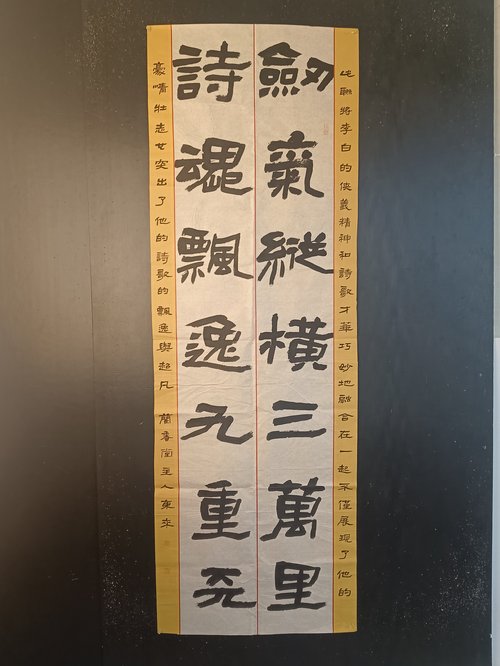 此聯將李白的俠義精神和詩歌才華巧妙地融合在一起不僅展現了他的
劒氣縱橫三萬里
詩魂飄逸九重天
豪情壯志也突出了他的詩歌的飄逸與超凡 蘭